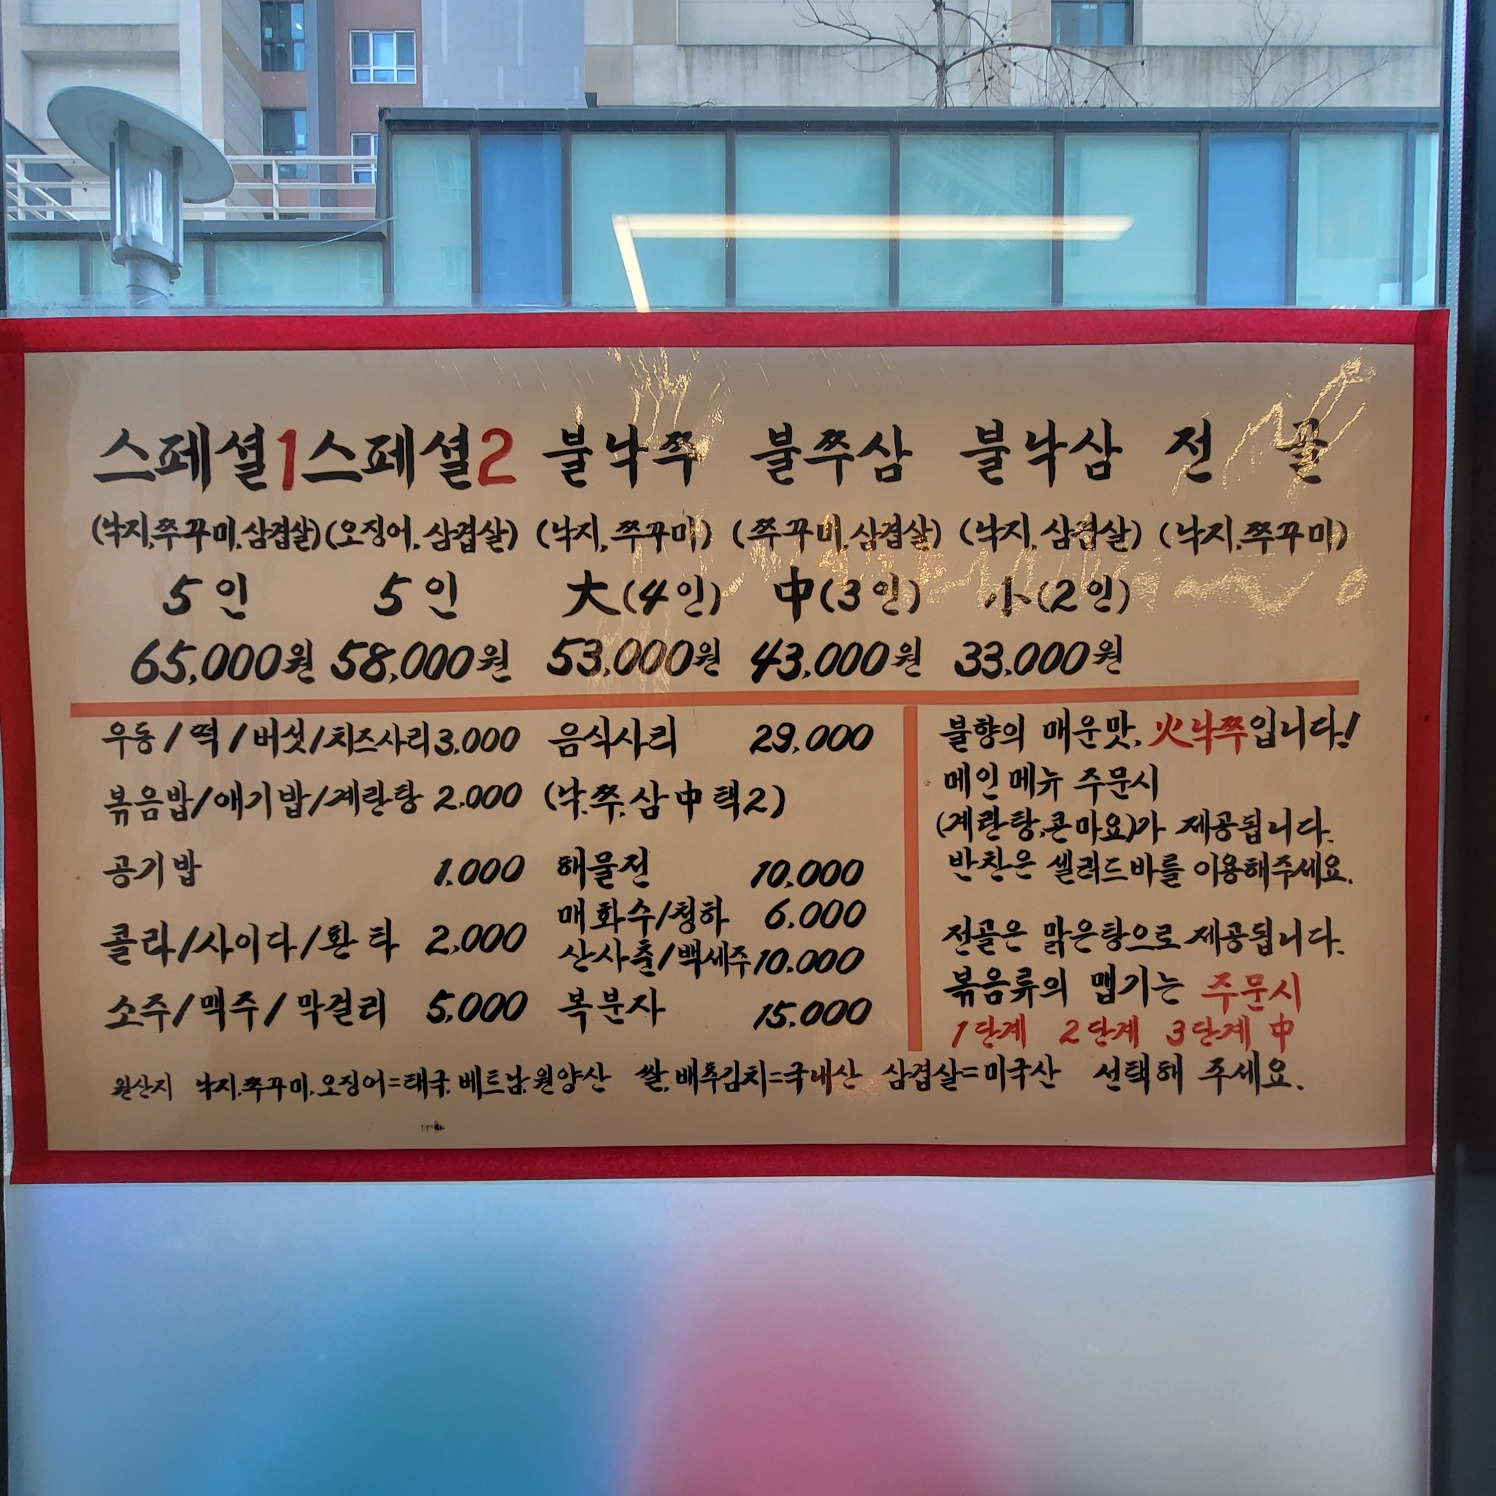 스페셜1 스페셜2 불낙쭈 불쭈삼 불낙삼 전 골
(낙지,쭈꾸미,삼겹살) (오징어, 삼겹살) (낙지, 쭈꾸미) (쭈꾸미, 삼겹살) (낙지, 삼겹살) (낙지, 쭈꾸미)
5인 5인 大(4인) 中(3인) 小(2인)
65,000원 58,000원 53,000원 43,000원 33,000원
우동/떡/버섯/치즈사리 3,000
볶음밥/애기밥/계란탕 2,000
공기밥 1,000
콜라/사이다/환타 2,000
소주/맥주/막걸리 5,000
음식사리 29,000
(낙.쭈.삼 中 택2)
해물전 10,000
매화수/청하 6,000
산사춘/백세주 10,000
복분자 15,000
불향의 매운맛, 火낙쭈입니다!
메인메뉴 주문시
(계란탕,콘마요)가 제공됩니다.
반찬은 셀러드바를 이용해주세요.
전골은 맑은탕으로 제공됩니다.
볶음류의 맵기는 주문시
1단계 2단계 3단계 中
선택해 주세요.
원산지 낙지.쭈꾸미.오징어=태국,베트남,원양산 쌀,배추김치=국내산 삼겹살=미국산